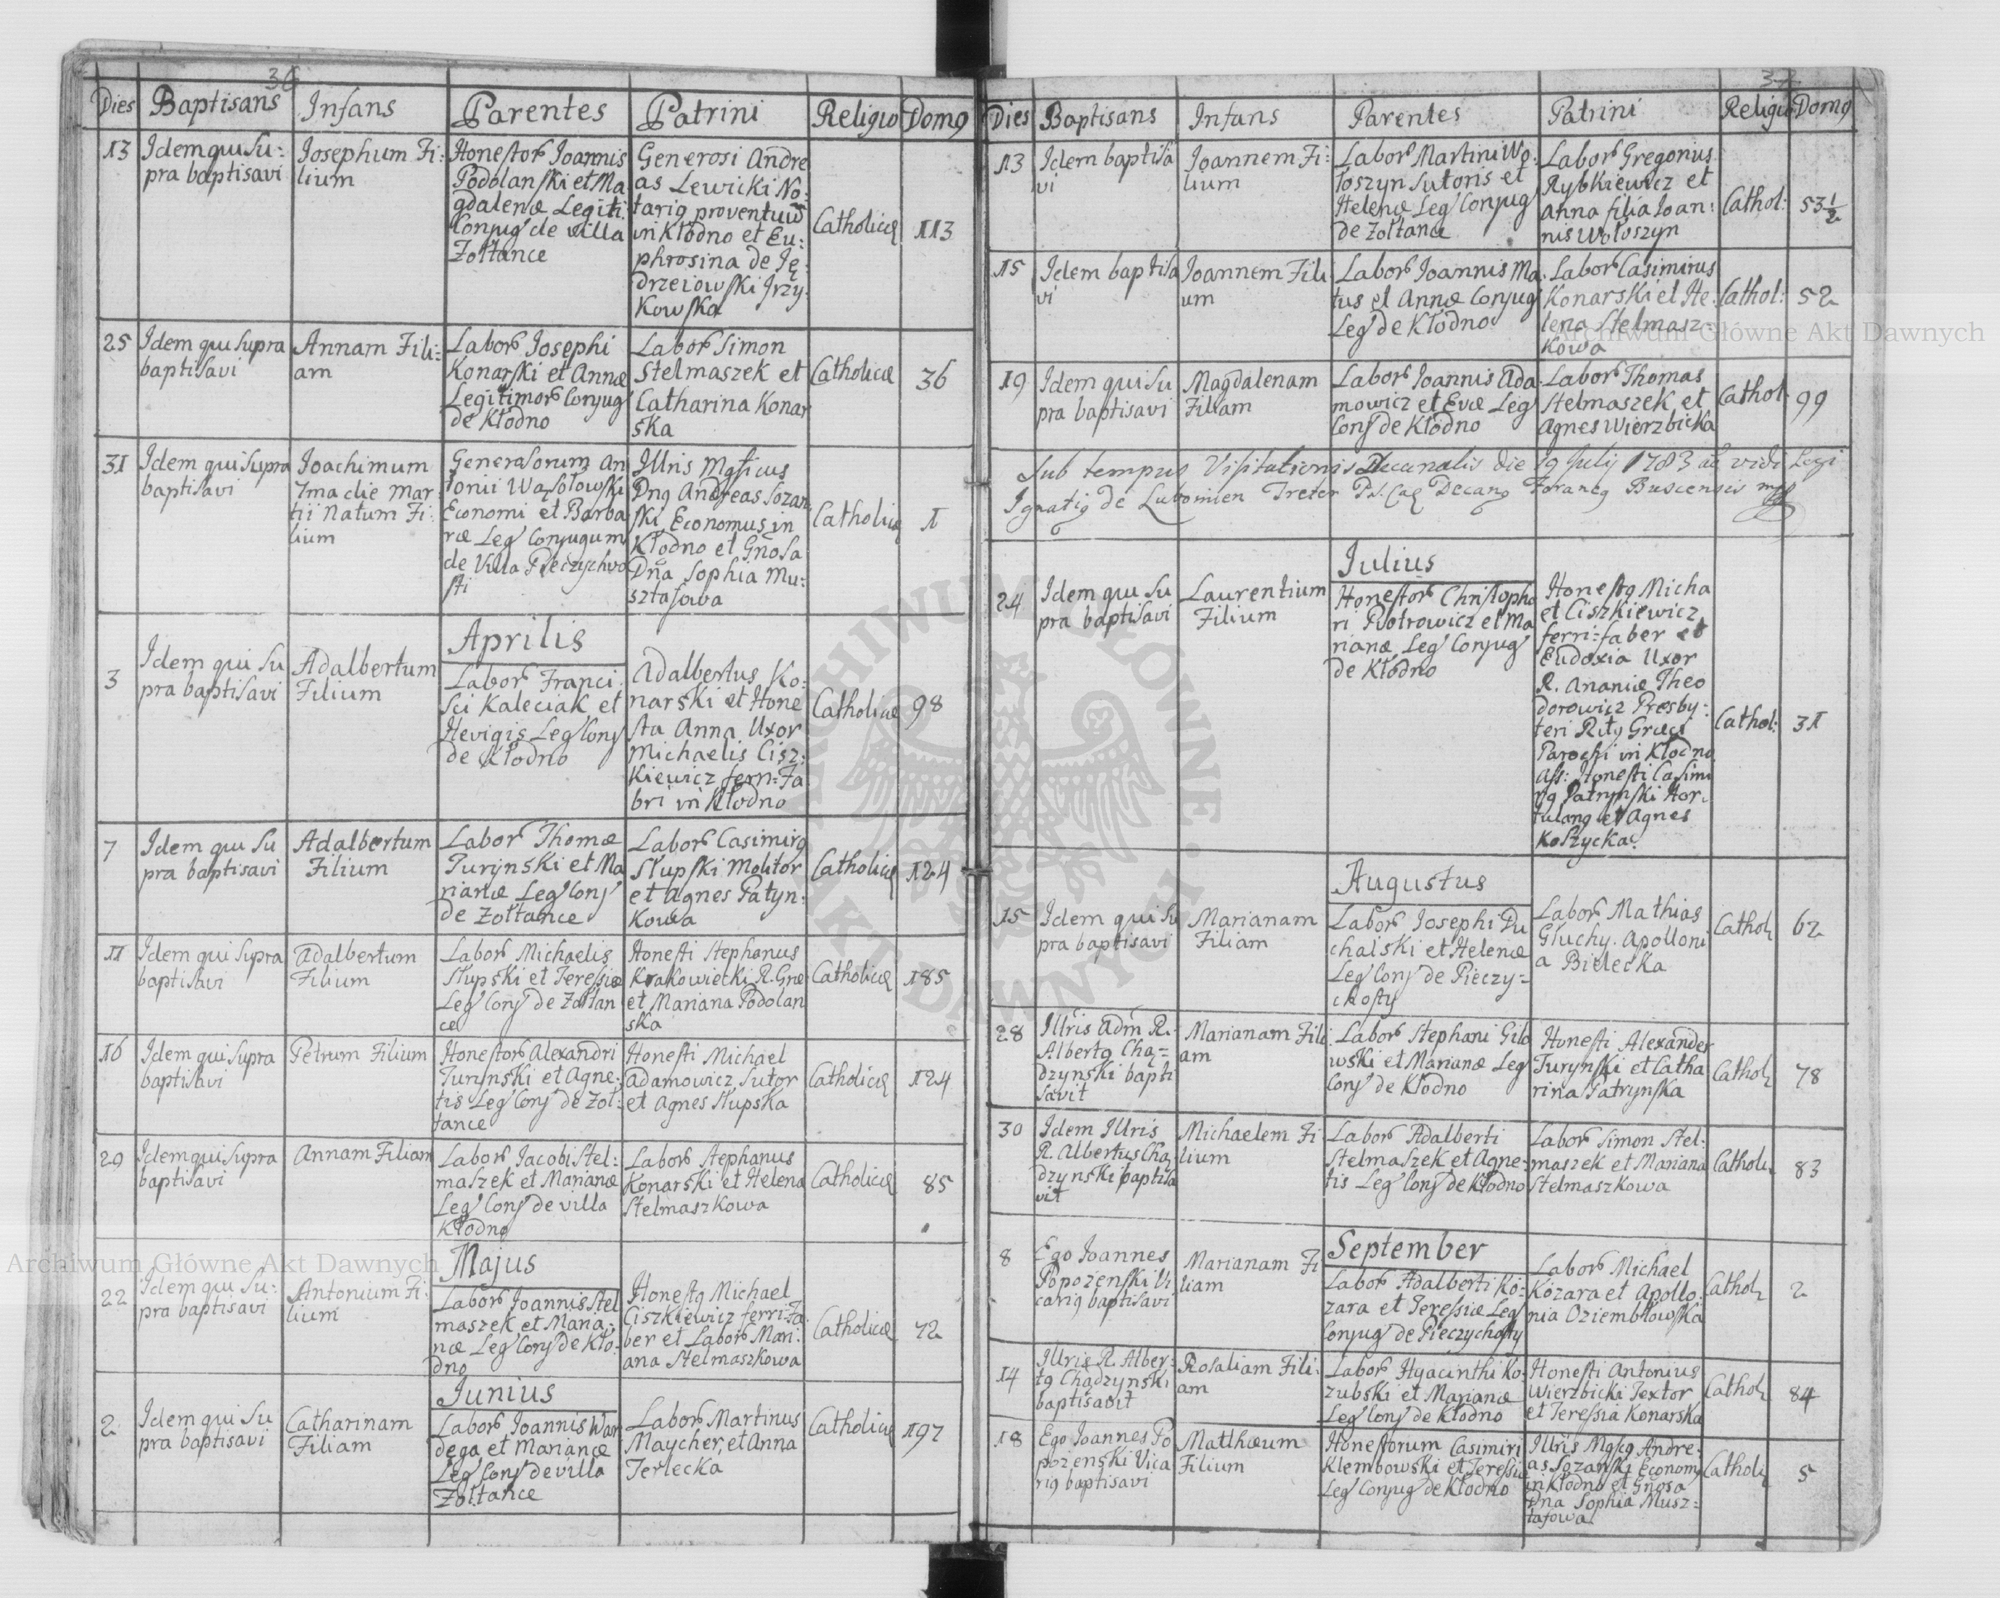 36
Dies Baptisans Infans Parentes Patrini Religio Domq
13
Idem qui Su-
pra baptisavi
Josephum Fi-
lium
Honestor Joannis
Podolanski et Ma
gdalenæ Legiti.
Conjug de villa
Zołtance
Generosi Andre
as Lewicki No-
tariq proventuũ
in Kłodno et Eu-
phrosina de Ję-
drzeiowski Jrzy-
kowska
Catholicæ
113
25
Idem qui Supra
baptisavi
Annam Fili-
am
Labor Josephi
Konarski et Annæ
Legitimor Conjug
de Kłodno
Labor Simon
Stelmaszek et
Catharina Konar
ska
Catholicæ
36
31
Idem qui Supra
baptisavi
Joachimum
7ma die Mar-
tii Natum Fi-
lium
Generosorum An
tonii Wąsołowski
Economi et Barba
ræ Leg Conjugum
de Villa Pieczychwo
sti
Illris Mgficus
Dnq Andreas Sozan
ski Economus in
Kłodno et Gñosa
Dña Sophia Mu-
sztafowa
Catholicæ
1
Aprilis
3
Idem qui Su
pra baptisavi
Adalbertum
Filium
Labor Franci
sci Kaleciak et
Hevigis Leg Conj
de Kłodno
Adalbertus Ko-
narski et Hone
sta Anna Uxor
Michaelis Cisz-
kiewicz ferri-Fa
bri in Kłodno
Catholicæ
98
7
Idem qui Su
pra baptisavi
Adalbertum
Filium
Labor Thomæ
Turynski et Ma
rianæ Leg Conj
de Zołtance
Labor Casimirq
Słupski Molitor
et Agnes Patyn-
kowa
Catholicæ
124
11
Idem qui Supra
baptisavi
Adalbertum
Filium
Labor Michaelis
Słupski et Teressiæ
Leg Conj de Zołtan
ce
Honesti Stephanus
Krakowiecki R. Græ
et Mariana Podolan
ska
Catholicæ
185
16
Idem qui Supra
baptisavi
Petrum Filium
Honestor Alexandri
Turynski et Agne-
tis Leg Conj de Zoł-
tance
Honesti Michael
Adamowicz Sutor
et Agnes Słupska
Catholicæ
124
29
Idem qui Supra
baptisavi
Annam Filiam
Labor Jacobi Stel-
maszek et Marianæ
Leg Conj de villa
Kłodno
Labor Stephanus
Konarski et Helena
Stelmaszkowa
Catholicæ
85
Majus
22
Idem qui Su-
pra baptisavi
Antonium Fi-
lium
Labor Joannis Stel
maszek et Maria-
næ Leg Conj de Kło-
dno
Honestq Michael
Ciszkiewicz ferri-Fa
ber et Labor Mari-
ana Stelmaszkowa
Catholicæ
72
Junius
2
Idem qui Su
pra baptisavi
Catharinam
Filiam
Labor Joannis War
dega et Mariannæ
Leg Conj de villa
Zołtance
Labor Martinus
Maycher, et Anna
Terlecka
Catholicæ
197
37
Dies Baptisans Infans Parentes Patrini Religio Domq
13
Idem baptisa
vi
Joannem Fi-
lium
Labor Martini Wo-
łoszyn Sutoris et
Helenæ Leg Conjug
de Zołtance
Labor Gregorius
Rybkiewicz et
Anna filia Joan-
nis Wołoszyn
Cathol:
53 1/2
15
Idem baptisa
vi
Joannem Fili
um
Labor Joannis Ma-
tus et Annæ Conjug
Leg de Kłodno
Labor Casimirus
Konarski et He-
lena Stelmasz-
kowa
Cathol:
52
19
Idem qui Su
pra baptisavi
Magdalenam
Filiam
Labor Joannis Ada-
mowicz et Evæ Leg
Conj de Kłodno
Labor Thomas
Stelmaszek et
Agnes Wierzbicka
Cathol
99
Sub tempus Visitationis Decanalis die 19 Julij 1783 ac vidi Legi
Ignatiq de Lubomien Treter Decanq Foraneq Buscensis
Julius
24
Idem qui Su
pra baptisavi
Laurentium
Filium
Honestor Christopho
ri Piotrowicz et Ma
rianæ Leg Conjug
de Kłodno
Honestq Micha
el Ciszkiewicz
ferri-faber et
Eudoxia Uxor
R. Ananiæ Theo
dorowicz Presby-
teri Ritq Græci
Parochi in Kłodno
Ass: Honesti Casimi
rq Patrynski Hor-
tulanq et Agnes
Koszycka.
Cathol:
31
Augustus
15
Idem qui Su
pra baptisavi
Marianam
Filiam
Labor Josephi Du
chalski et Helenæ
Leg Conj de Pieczy-
chosty
Labor Mathias
Głuchy. Apolloni
a Bielecka
Cathol
62
28
Illris Adm R.
Albertq Chą-
dzynski bapti
savit
Marianam Fili
am
Labor Stephani Gilo
wski et Marianæ Leg
Conj de Kłodno
Honesti Alexander
Turynski et Catha
rina Patrynska
Cathol
78
30
Idem Illris
R. Albertus Chą
dzynski baptisa
vit
Michaelem Fi
lium
Labor Adalberti
Stelmaszek et Agne-
tis Leg Conj de Kłodno
Labor Simon Stel-
maszek et Mariana
Stelmaszkowa
Cathol
83
September
8
Ego Joannes
Popozenski Vi
cariq baptisavi
Marianam Fi
liam
Labor Adalberti Ko-
zara et Teressiæ Leg
Conjug de Pieczychosty
Labor Michael
Kozara et Apollo-
nia Oziembłowska
Cathol
2
14
Illris R. Alber-
tq Chądzynski
baptisavit
Rosaliam Fili-
am
Labor Hyacinthi Ko-
zubski et Marianæ
Leg Conj de Kłodno
Honesti Antonius
Wierzbicki Textor
et Teressia Konarska
Cathol
84
18
Ego Joannes Po
pozenski Vica
riq baptisavi
Matthæum
Filium
Honestorum Casimiri
Klembowski et Teressiæ
Leg Conjug de Kłodno
Illris Mgfcq Andre-
as Sozanski Econom
in Kłodno et Gñosa
Dna Sophia Musz-
tafowa
Cathol
5
Archiwum Główne Akt Dawnych
Archiwum Główne Akt Dawnych
ARCHIWUM GŁÓWNE AKT DAWNYCH